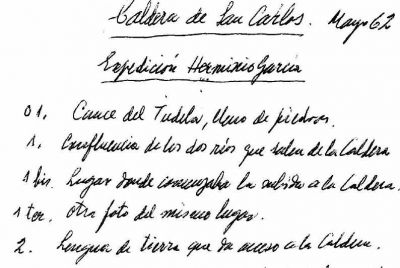 Caldera de San Carlos. Mayo 62
Expedición Herminio García
01. Cauce del Tudela, lleno de piedras.
1. Confluencia de los dos ríos que salen de la Caldera
1 bis. Lugar donde comenzaba la subida a la Caldera.
1 ter. Otra foto del mismo lugar.
2. Lengua de tierra que da acceso a la Caldera.